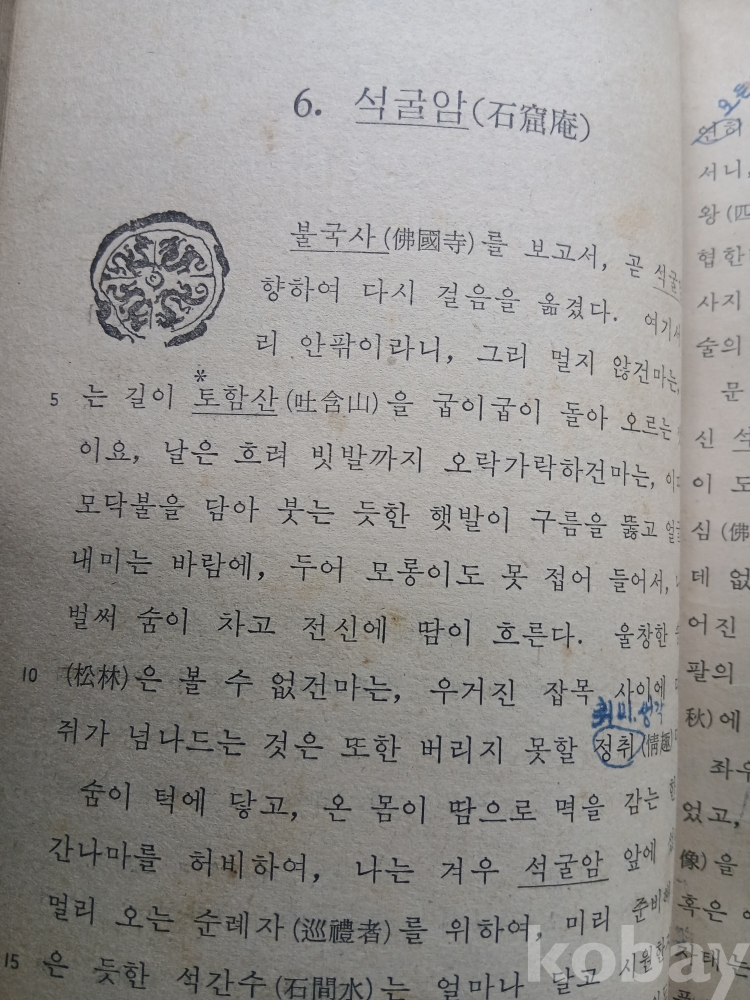 6. 석굴암(石窟庵)
불국사(佛國寺)를 보고서, 곧 석굴
향하여 다시 걸음을 옮겼다. 여기서
리 안팎이라니, 그리 멀지 않건마는,
5 는 길이 *토함산(吐含山)을 굽이굽이 돌아 오르는
이요, 날은 흐려 빗발까지 오락가락하건마는,
모닥불을 담아 붓는 듯한 햇발이 구름을 뚫고 얼굴
내미는 바람에, 두어 모롱이도 못 접어 들어서,
벌써 숨이 차고 전신에 땀이 흐른다. 울창한
10 (松林)은 볼 수 없건마는, 우거진 잡목 사이에
취미, 생각
쥐가 넘나드는 것은 또한 버리지 못할 정취(情趣)
숨이 턱에 닿고, 온 몸이 땀으로 멱을 감는 한
간나마를 허비하여, 나는 겨우 석굴암 앞에
멀리 오는 순례자(巡禮者)를 위하여, 미리 준비
15 은 듯한 석간수(石間水)는 얼마나 달고 시원한
서니,
왕(四
협한
사지
술의
문
신 석
이 도
심(佛
데 없
어진
팔의
秋)에
좌우
었고,
像)을
혹은
사태는
kobay